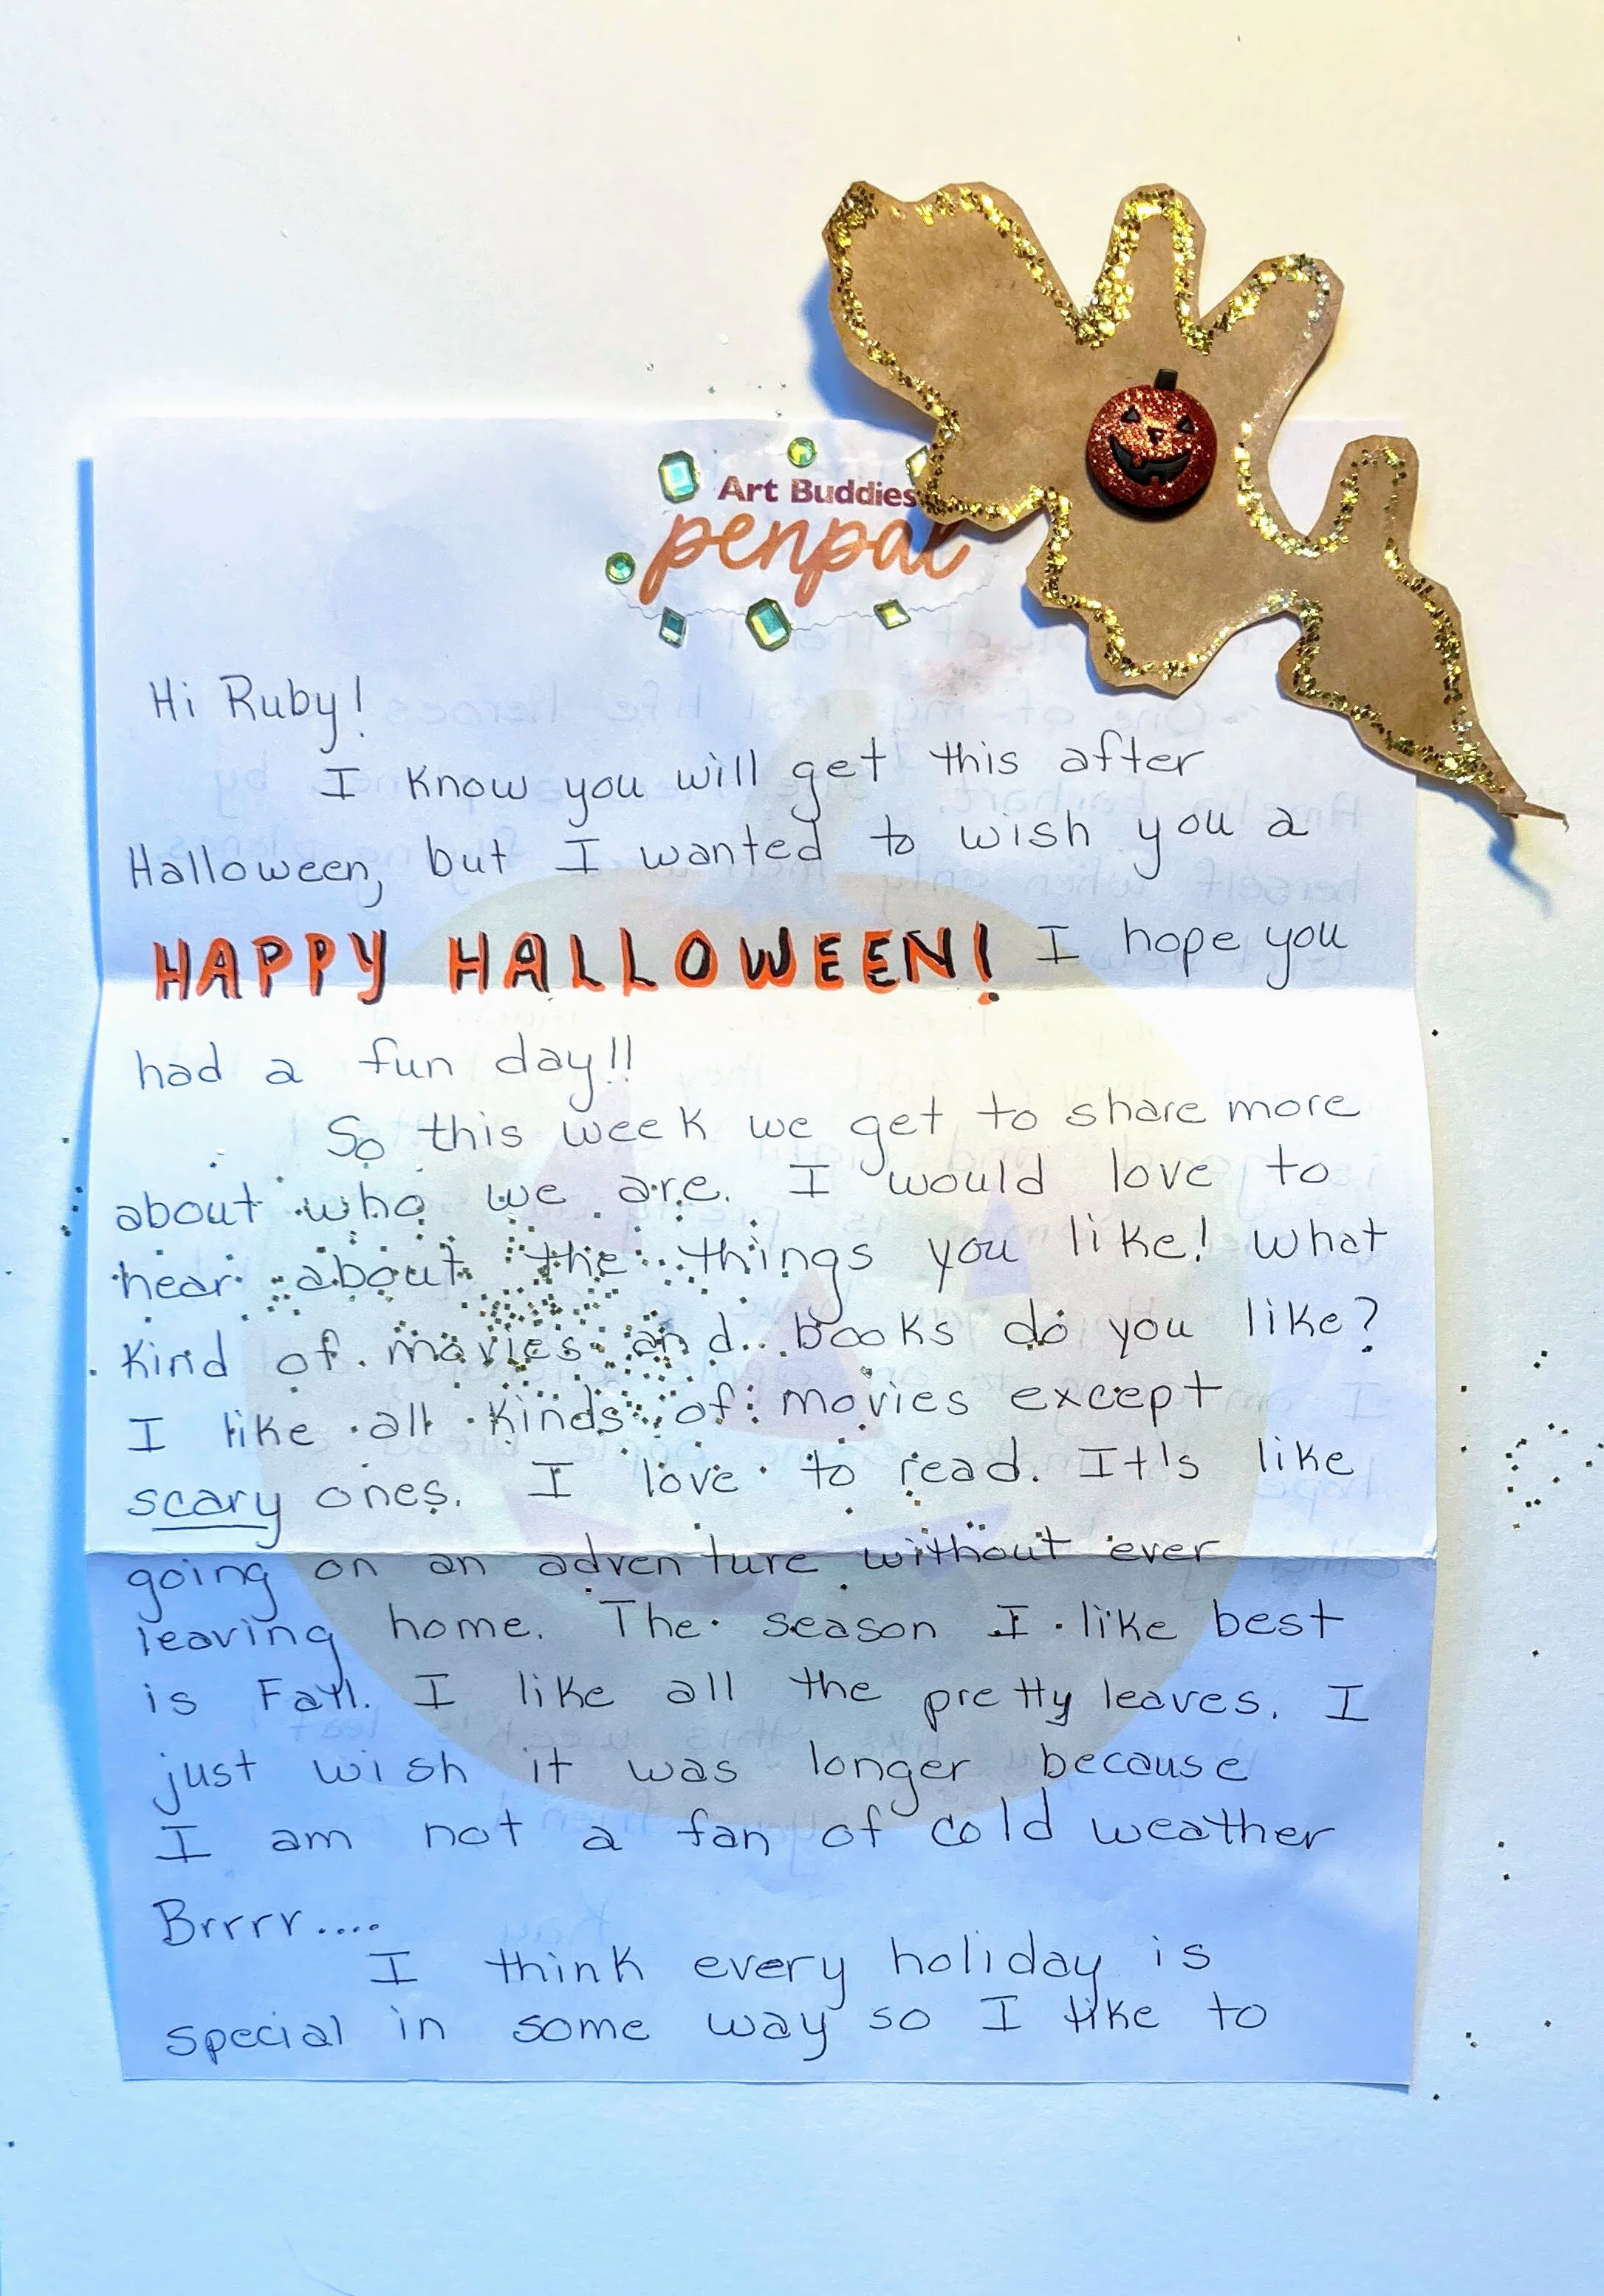 Art Buddies
penpal
Hi Ruby!
I know you will get this after
Halloween, but I wanted to wish you a
HAPPY HALLOWEEN! I hope you
had a fun day!!
So this week we get to share more
about who we are. I would love to
hear about the things you like! What
kind of movies and books do you like?
I like all kinds of movies except
scary ones. I love to read. It's like
going on an adventure without ever
leaving home. The season I like best
is Fall. I like all the pretty leaves. I
just wish it was longer because
I am not a fan of cold weather
Brrrr....
I think every holiday is
special in some way so I like to